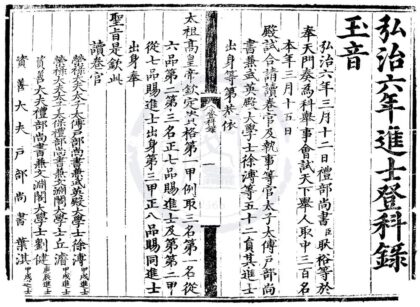 弘治六年進士登科録
玉音
弘治六年三月十二日禮部尚書臣耿裕等於
奉天門奏爲科舉事會試天下舉人取中三百名
本年三月十五日
殿試合請讀卷官及執事等官太子太傅戶部尚
書兼武英殿大學士徐溥等五十二員其進士
出身等第恭依
太祖高皇帝欽定資格第一甲例取三名第一名從
六品第二第三名正七品賜進士及第第二甲
從七品賜進士出身第三甲正八品賜同進士
出身奉
聖旨是欽此
讀卷官
榮祿大夫太子太傅戶部尚書兼武英殿大學士徐溥 甲戌進士
榮祿大夫太子太保禮部尚書兼文淵閣大學士丘濬 甲戌進士
資善大夫禮部尚書兼文淵閣大學士劉健 庚辰進士
資善大夫戶部尚書葉淇 甲戌進士